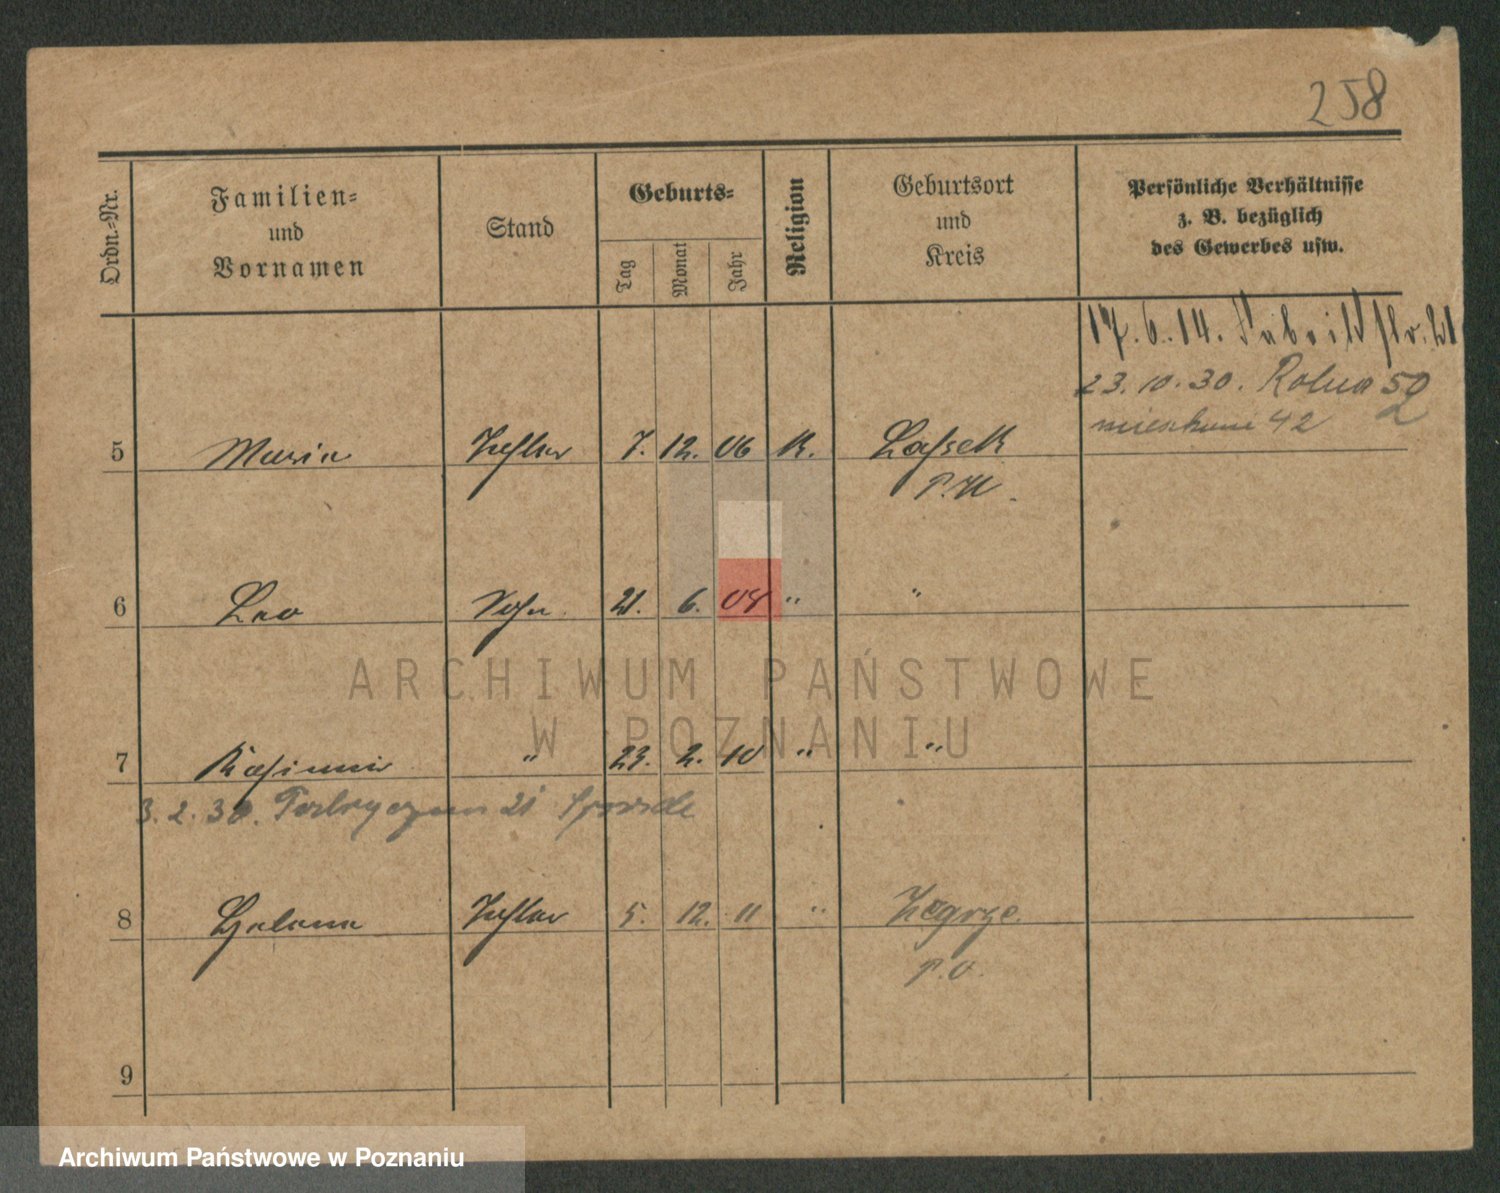 258
Ordn.=Nr.
Familien=
und
Vornamen
Stand
Geburts=
Tag
Monat
Jahr
Religion
Geburtsort
und
Kreis
Persönliche Verhältnisse
z. B. bezüglich
des Gewerbes usw.
17. 6. 14. Fabrikstr. 21
23. 10. 30. Rolna 52
mieszkanie 42
5 Maria Tochter 7. 12. 06 K. Lassek
P. W.
6 Leo Sohn 21. 6. 08 " "
ARCHIWUM PAŃSTWOWE
W POZNANIU
7 Kasimir " 23. 2. 10 " "
3. 2. 30. 21
8 Helena Tochter 5. 12. 11 " Zegrze
P. O.
9
Archiwum Państwowe w Poznaniu